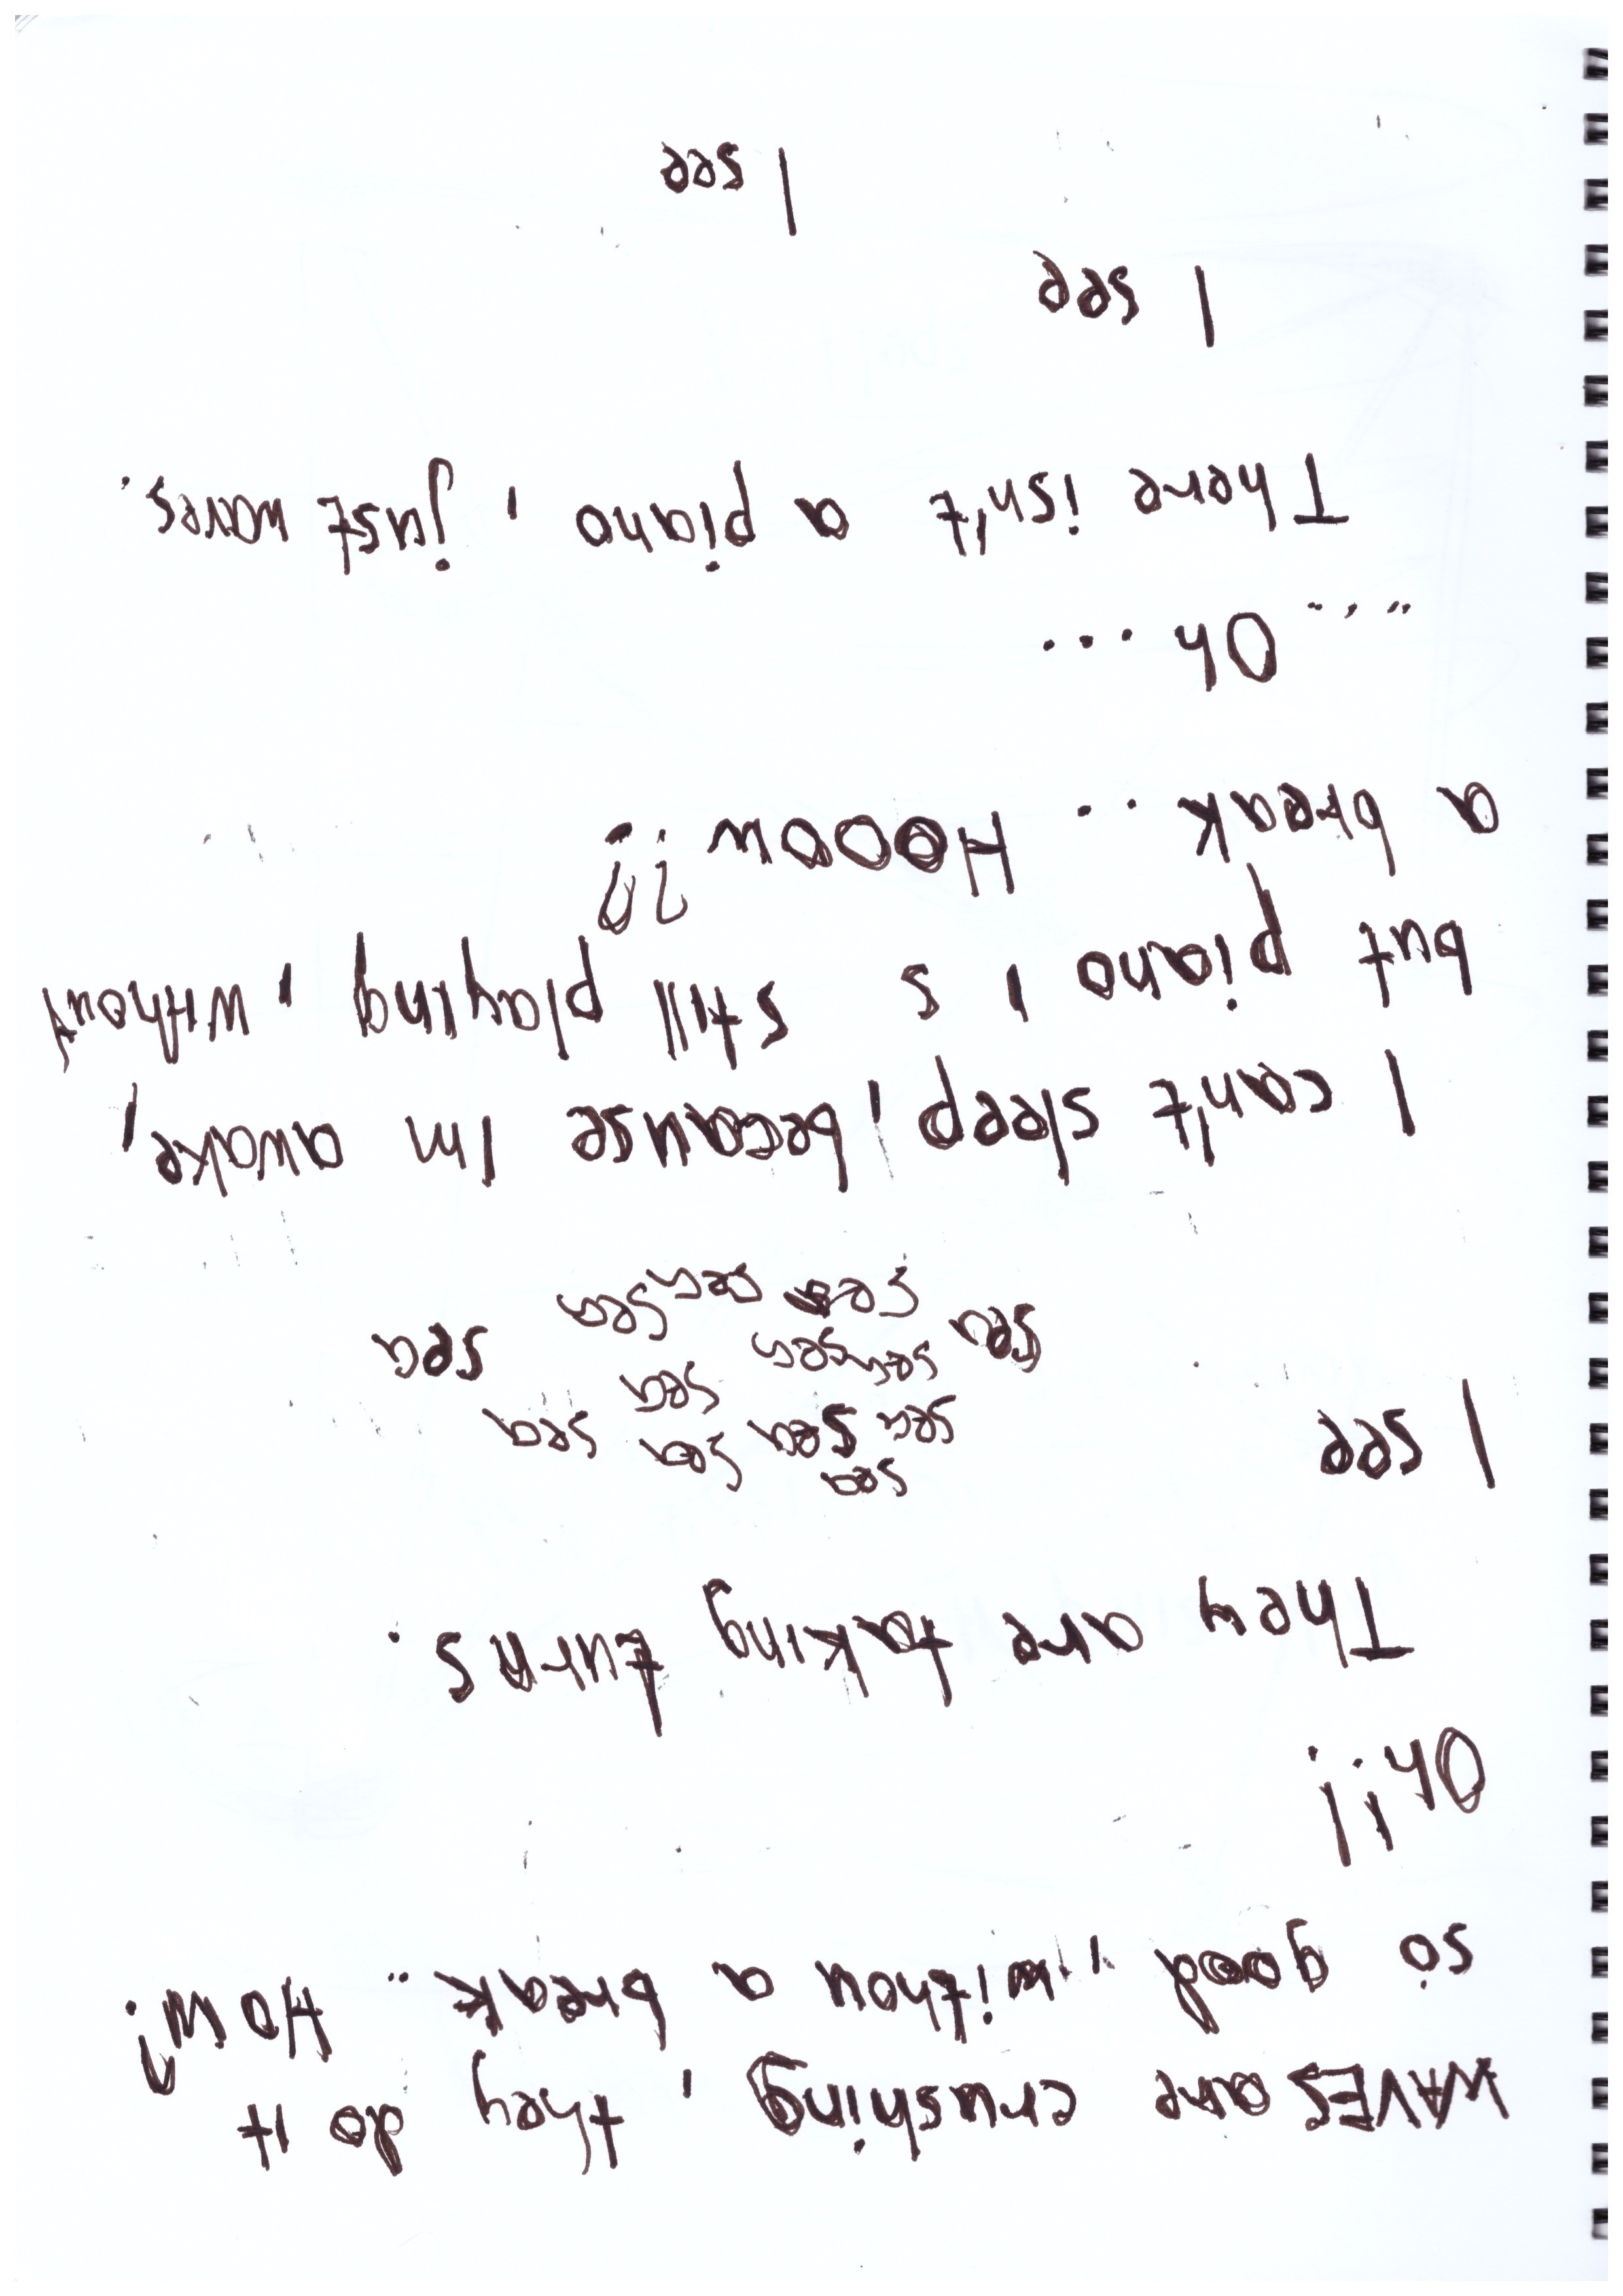 WAVES are crushing, they do it
so good, withou a break.. How?
Oh!!
They are taking turns.
I see
sea
sea sea sea sea
sea sea sea
sea sea sea sea sea
I can't sleep, because Im awake,
but piano is still playing, without
a break... Hooow??
... Oh ...
There isn't a piano, just waves.
I see
I see